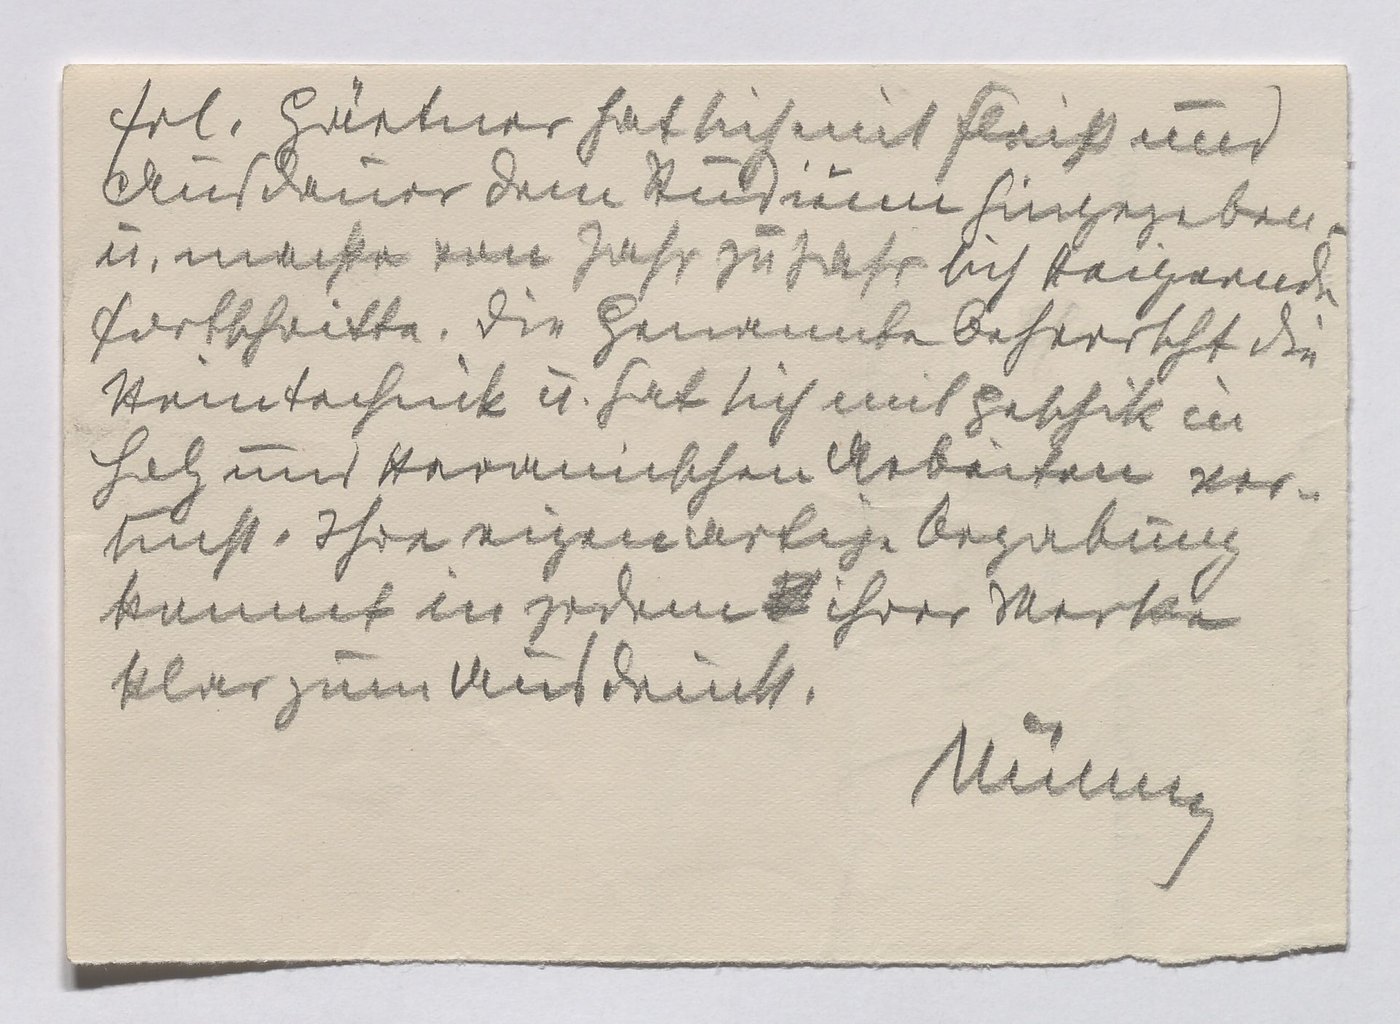 Frl. Gärtner hat sich mit Fleiß und
Ausdauer dem Studium hingegeben
u. machte von Jahr zu Jahr sich steigernde
Fortschritte. Die Genannte beherrscht die
Steintechnik u. hat sich mit Geschik in
Holz und Keramischen Arbeiten ver-
sucht. Ihre eigenartige Begabung
kommt in jedem ihrer Werke
klar zum Ausdruck.